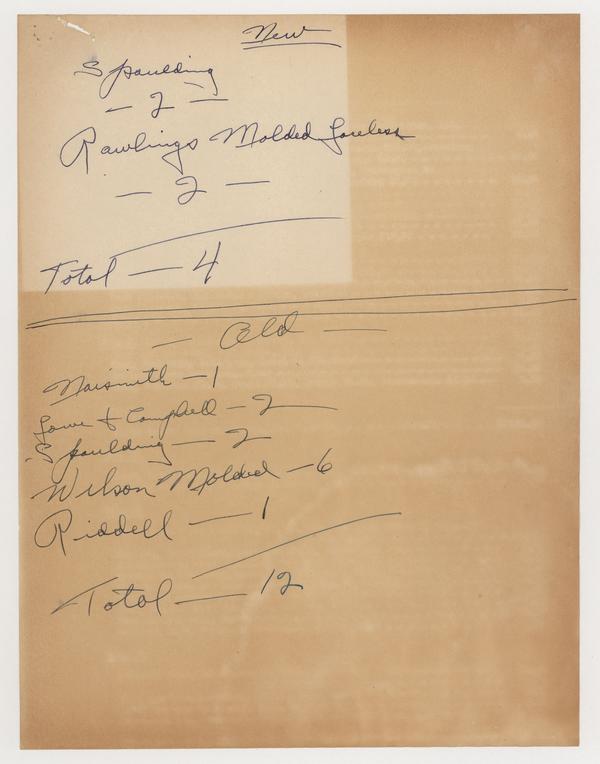 New
Spaulding
— 2 —
Rawlings Molded Laceless
— 2 —
Total — 4
— Old —
Naismith — 1
Lowe & Campbell — 2
Spaulding — 2
Wilson Molded — 6
Riddell — 1
Total — 12